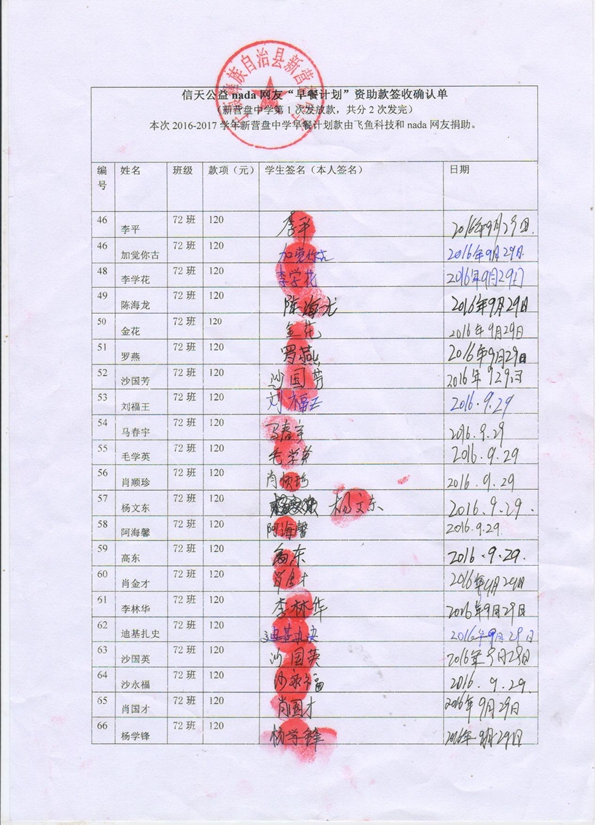 族自治县新营
信天公益nada网友“早餐计划”资助款签收确认单
(新营盘中学第1次发放款,共分2次发完)
本次2016-2017学年新营盘中学早餐计划款由飞鱼科技和nada网友捐助。
编号 姓名 班级 款项(元) 学生签名(本人签名) 日期
46 李平 72班 120 李平 2016年9月29日
46 加觉你古 72班 120 加觉你古 2016年9月29日
48 李学花 72班 120 李学花 2016年9月29日
49 陈海龙 72班 120 陈海龙 2016年9月29日
50 金花 72班 120 金花 2016年9月29日
51 罗燕 72班 120 罗燕 2016年9月29日
52 沙国芳 72班 120 沙国芳 2016年929日
53 刘福王 72班 120 刘福王 2016.9.29
54 马春宇 72班 120 马春宇 2016.9.29
55 毛学英 72班 120 毛学英 2016.9.29
56 肖顺珍 72班 120 肖顺珍 2016.9.29
57 杨文东 72班 120 杨文东 2016.9.29.
58 阿海馨 72班 120 阿海馨 2016.9.29
59 高东 72班 120 高东 2016.9.29
60 肖金才 72班 120 肖金才 2016年9月29日
61 李林华 72班 120 李林华 2016年9月29日
62 迪基扎史 72班 120 迪基扎史 2016年9月29日
63 沙国英 72班 120 沙国英 2016年9月29日
64 沙永福 72班 120 沙永福 2016.9.29
65 肖国才 72班 120 肖国才 2016年9月29日
66 杨学锋 72班 120 杨学锋 2016年9月29日